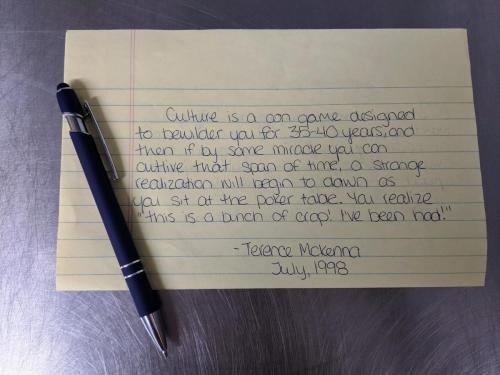 Culture is a con game designed
to bewilder you for 35-40 years, and
then if by some miracle you can
outlive that span of time, a strange
realization will begin to dawn as
you sit at the poker table. You realize
"this is a bunch of crap! I've been had!"
- Terence McKenna
July, 1998